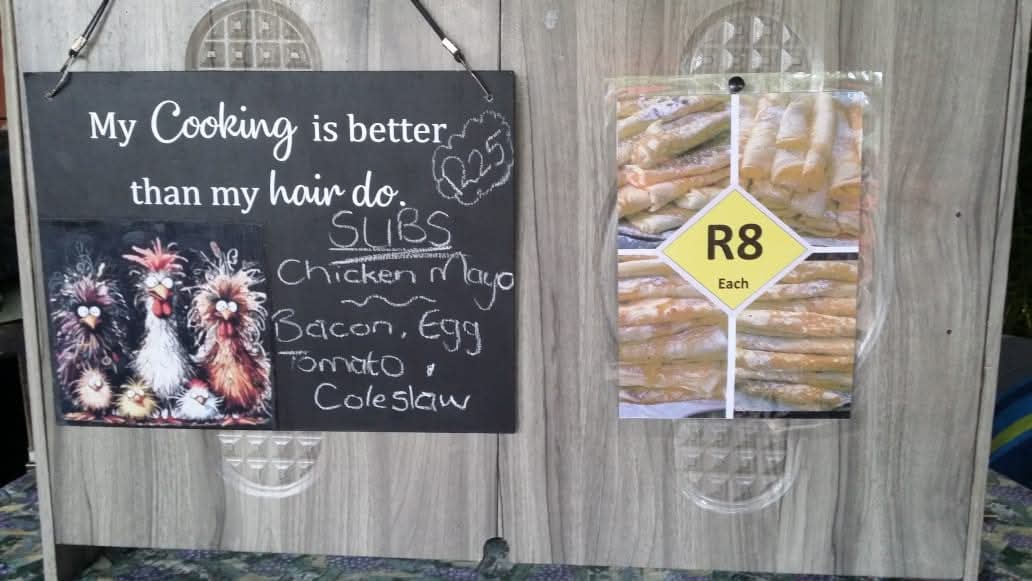 My Cooking is better
than my hair do.
R25
SUBS
Chicken Mayo
Bacon, Egg
Tomato,
Coleslaw
R8
Each